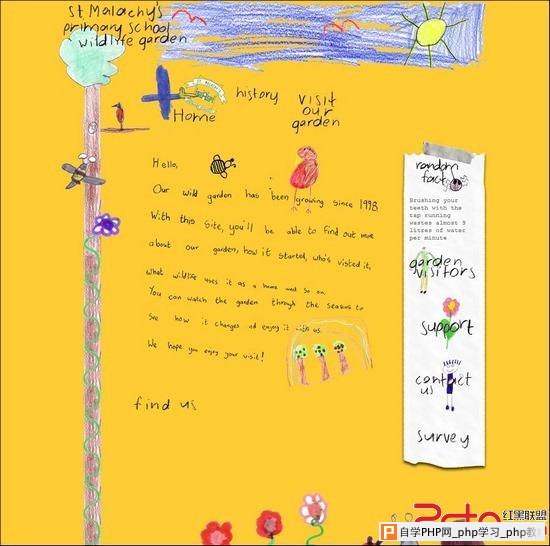 St Malachy's
primary school
wildlife garden
Home
history
visit
our
garden
Hello,
Our wild garden has been growing since 1998
With this site, you'll be able to find out more
about our garden, how it started, who's visited it,
what wildlife uses it as a home and so on.
You can watch the garden through the seasons to
see how it changes ad enjoy it with us.
We hope you enjoy your visit!
find us
random
fact
Brushing your
teeth with the
tap running
wastes almost 9
litres of water
per minute
garden
visitors
support
contact
us
survey
红黑联盟
自学PHP网_php学习_php教程